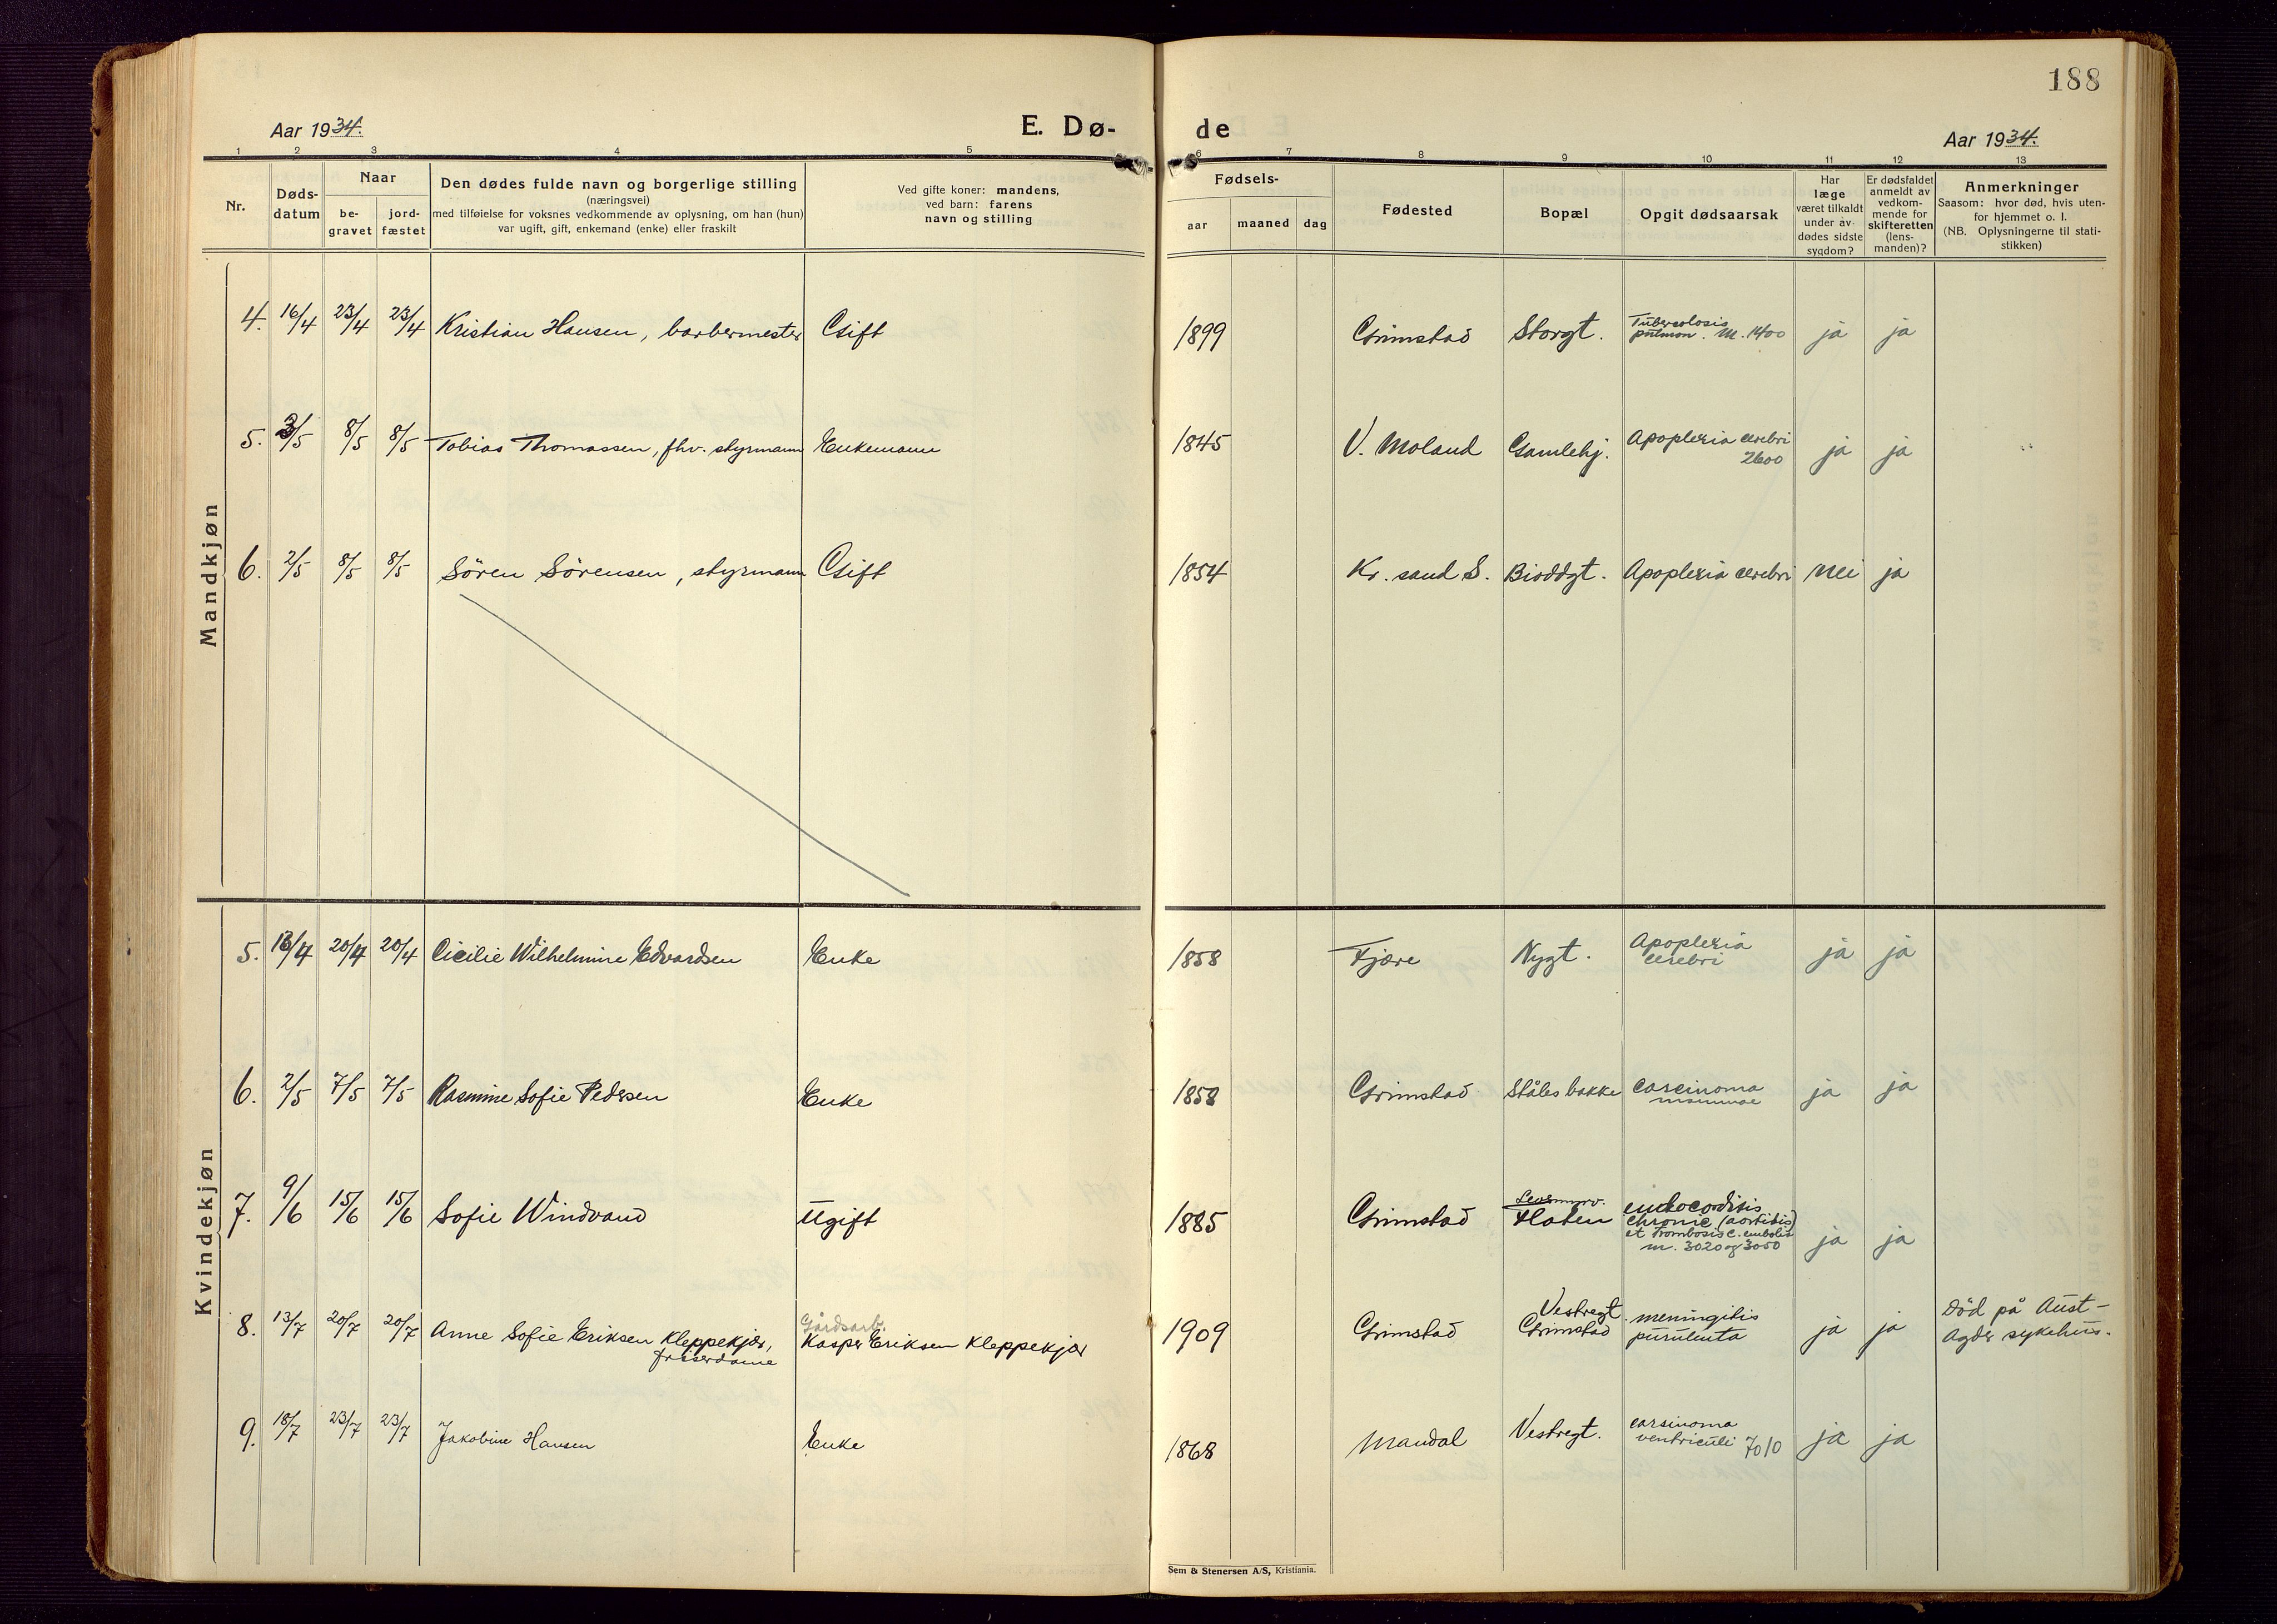 188
Aar 1934.
E. Dø-
de
Aar 1934.
1 2 3 4 5 6 7 8 9 10 11 12 13
Nr.
Døds-
datum
Naar
be-
gravet
jord-
fæstet
Den dødes fulde navn og borgerlige stilling
(næringsvei)
med tilføielse for voksnes vedkommende av oplysning, om han (hun)
var ugift, gift, enkemand (enke) eller fraskilt
Ved gifte koner: mandens,
ved barn: farens
navn og stilling
Fødsels-
aar
maaned
dag
Fødested
Bopæl
Opgit dødsaarsak
Har
læge
været tilkaldt
under av-
dødes sidste
sygdom?
Er dødsfaldet
anmeldt av
vedkom-
mende for
skifteretten
(lens-
manden)?
Anmerkninger
Saasom: hvor død, hvis uten-
for hjemmet o. l.
(NB. Oplysningerne til stati-
stikken)
Mandkjøn
4. 16/4 23/4 23/4 Kristian Hansen, barbermester Gift 1899 Grimstad Storgt. Tuberculosis
pulmon. M. 1400 ja ja
5. 3/5 8/5 8/5 Tobias Thomassen, fhv. styrmann Enkemann 1845 V. Moland Gamlehj. Apoplexia cerebri
2600 ja ja
6. 2/5 8/5 8/5 Sören Sörensen, styrmann Gift 1854 Kr. sand S. Bioddgt. Apoplexia cerebri nei ja
Kvindekjøn
5. 13/4 20/4 20/4 Cicilie Wilhelmine Edvardsen Enke 1858 Fjære Nygt. Apoplexia
cerebri ja ja
6. 2/5 7/5 7/5 Rasmine Sofie Pedersen Enke 1858 Grimstad Ståles bakke Carcinoma
mammae ja ja
7. 9/6 15/6 15/6 Sofie Windvand Ugift 1885 Grimstad
Haven endocarditis
chronic (aortitis)
et Trombosis c. emboli
m. 3020 og 3050 ja ja
8. 13/7 20/7 20/7 Anne Sofie Eriksen Kleppekjær,
friserdame
Gårdsarb.
Kasper Eriksen Kleppekjær 1909 Grimstad
Vestregt
Grimstad meningitis
purulenta ja ja Död på Aust-
Agder sykehus.
9. 18/7 23/7 23/7 Jakobine Hansen Enke 1868 Mandal Vestregt. carsinoma
ventriculi 7010 ja ja
Sem & Stenersen A/S, Kristiania.